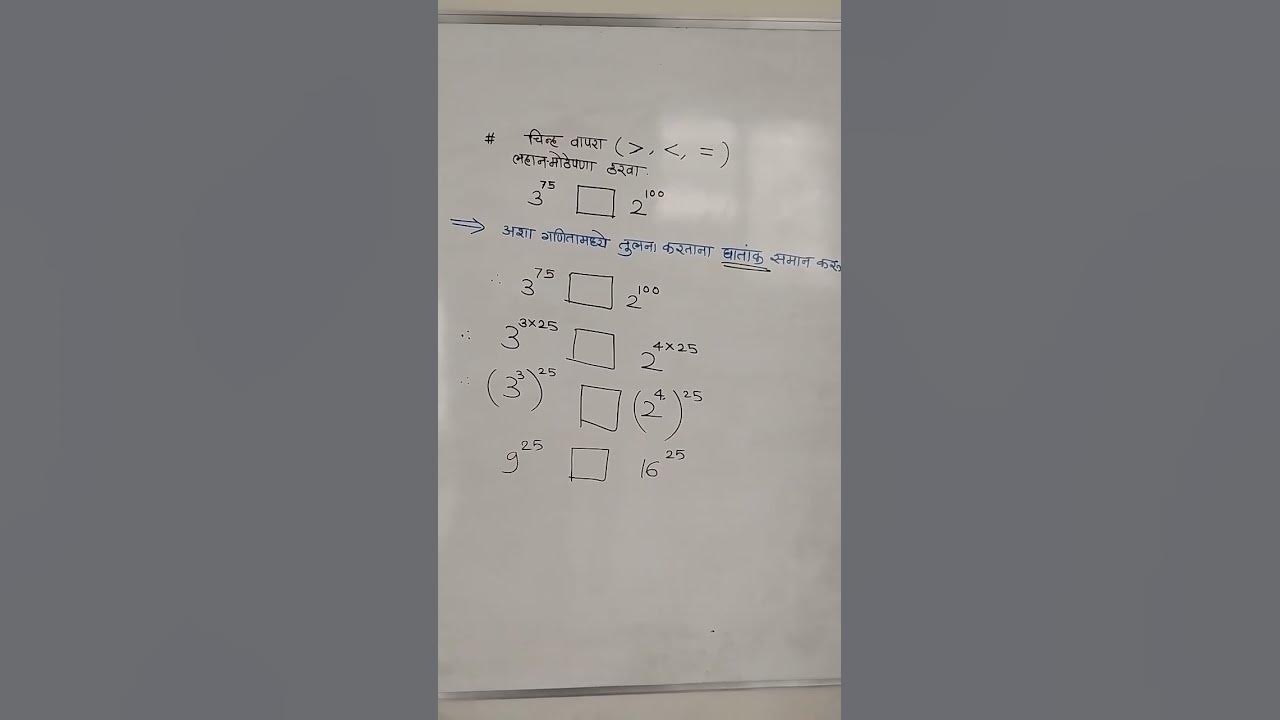 # चिन्ह वापरा ( >, <, = )
लहान-मोठेपणा ठरवा.
3^75 □ 2^100
⇒ अशा गणितामध्ये तुलना करताना घातांक समान करू
∴ 3^75 □ 2^100
∴ 3^3×25 □ 2^4×25
∴ (3^3)^25 □ (2^4)^25
9^25 □ 16^25